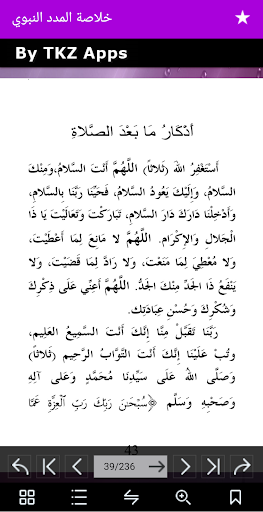 خلاصة المدد النبوي
By TKZ Apps
أَذْكَارُ مَا بَعْدَ الصَّلَاةِ
أَسْتَغْفِرُ اللهَ (ثَلاثاً) اللَّهُمَّ أَنْتَ السَّلامُ،وَمِنْكَ
السَّلامُ، وَإِلَيْكَ يَعُودُ السَّلامُ، فَحَيِّنَا رَبَّنَا بِالسَّلامِ،
وَأَدْخِلْنَا دَارَكَ دَارَ السَّلامِ، تَبَارَكْتَ وَتَعَالَيْتَ يَا ذَا
الْجَلالِ وَالإِكْرَامِ. اللَّهُمَّ لا مَانِعَ لِمَا أَعْطَيْتَ،
وَلا مُعْطِيَ لِمَا مَنَعْتَ، وَلا رَادَّ لِمَا قَضَيْتَ، وَلا
يَنْفَعُ ذَا الْجَدِّ مِنْكَ الْجَدُّ. اللَّهُمَّ أَعِنِّي عَلَى ذِكْرِكَ
وَشُكْرِكَ وَحُسْنِ عِبَادَتِكَ.
رَبَّنَا تَقَبَّلْ مِنَّا إِنَّكَ أَنْتَ السَّمِيعُ العَلِيمُ،
وَتُبْ عَلَيْنَا إِنَّكَ أَنْتَ التَّوَّابُ الرَّحِيم (ثَلاثاً)
وَصَلَّى اللهُ عَلَى سَيِّدِنَا مُحَمَّدٍ وَعَلَى آلِهِ
وَصَحْبِهِ وَسَلَّم ﴿سُبْحَٰنَ رَبِّكَ رَبِّ الْعِزَّةِ عَمَّا
43
39/236